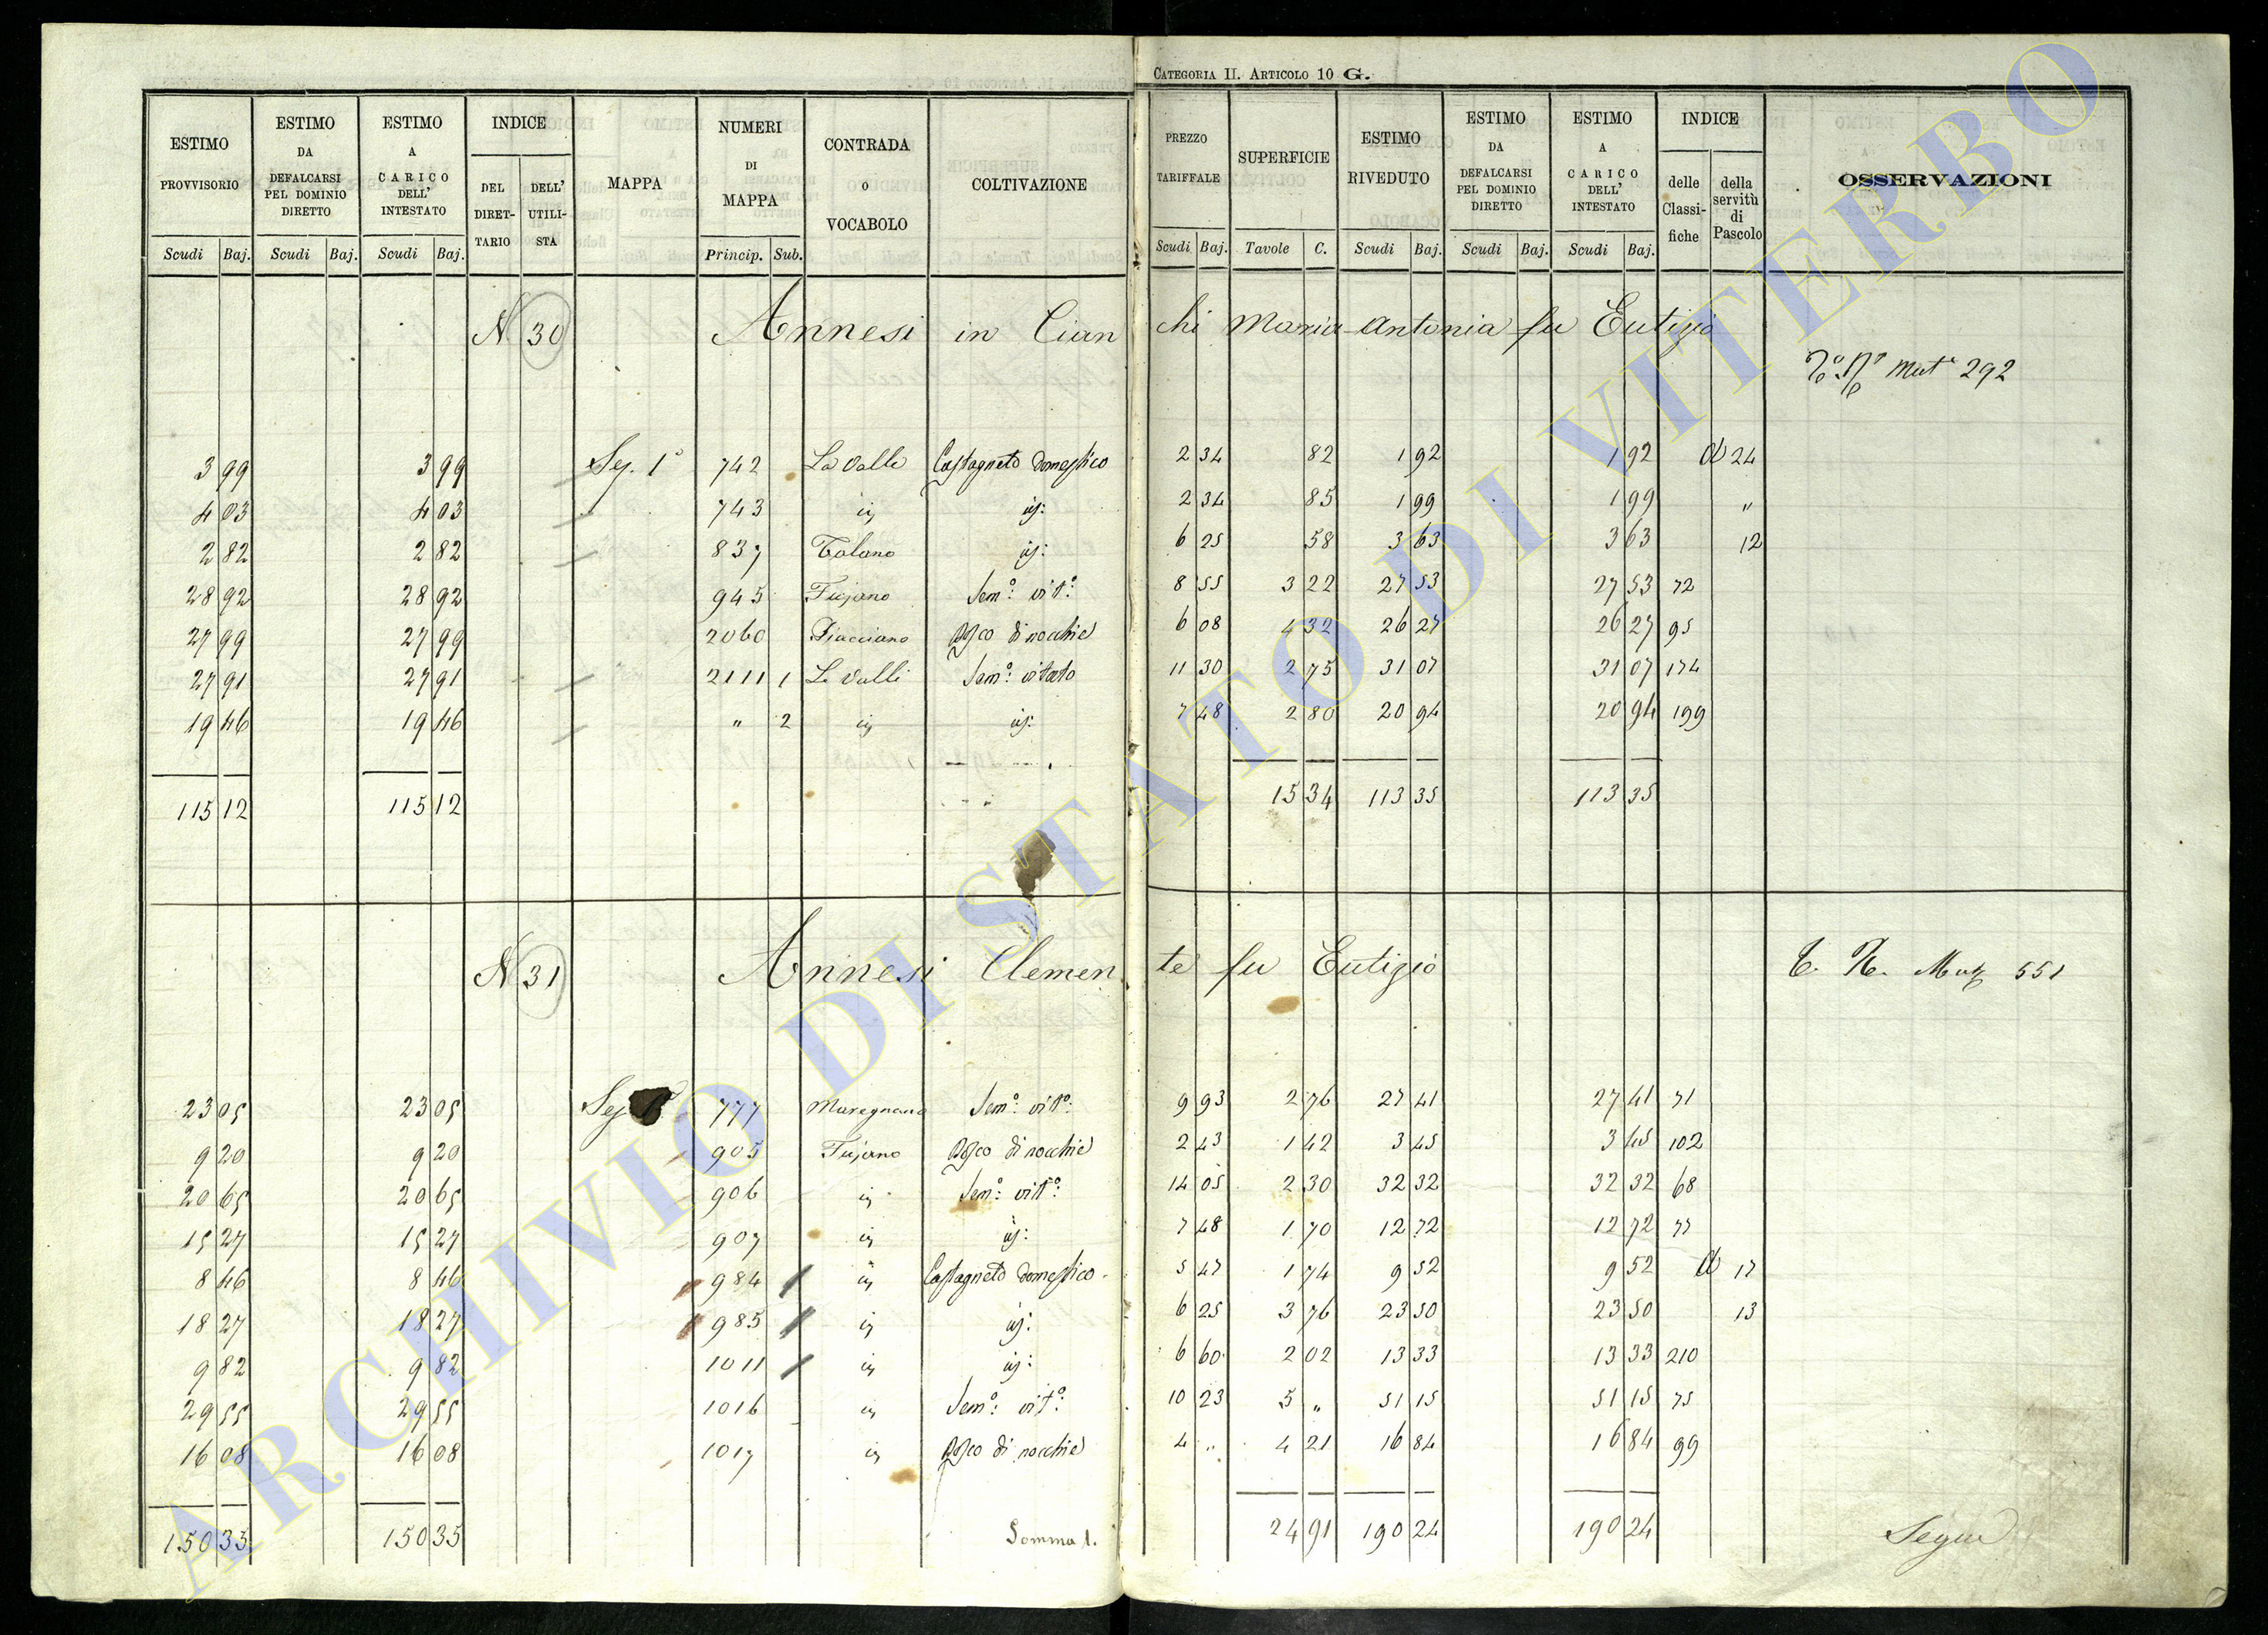 CATEGORIA II. ARTICOLO 10 G.
ESTIMO PROVVISORIO ESTIMO DA DEFALCARSI PEL DOMINIO DIRETTO ESTIMO A CARICO DELL' INTESTATO INDICE DEL DIRET-TARIO DELL' UTILI-STA MAPPA NUMERI DI MAPPA CONTRADA O VOCABOLO COLTIVAZIONE PREZZO TARIFFALE SUPERFICIE ESTIMO RIVEDUTO ESTIMO DA DEFALCARSI PEL DOMINIO DIRETTO ESTIMO A CARICO DELL' INTESTATO INDICE delle Classi-fiche della servitù di Pascolo OSSERVAZIONI
Scudi Baj. Scudi Baj. Scudi Baj. Princip. Sub. Scudi Baj. Tavole C. Scudi Baj. Scudi Baj. Scudi Baj.
N 30 Annesi in Cianchi Maria Antonia fu Eutizio
Mut 292
3 99 3 99 Sez. 1ª 742 La Valle Castagneto domestico 2 34 82 1 92 1 92 d 24
4 03 4 03 743 id: 2 34 85 1 99 1 99 "
2 82 2 82 837 id: 6 25 58 3 63 3 63 12
28 92 28 92 945 Fujano Semº: vitº: 8 55 3 22 27 53 27 53 72
27 99 27 99 2060 Bosco di nocchie 6 08 4 32 26 27 26 27 95
27 91 27 91 2111 1 Le Valli Semº: vitato 11 30 2 75 31 07 31 07 174
19 46 19 46 " 2 id: 7 48 2 80 20 94 20 94 199
115 12 115 12 15 34 113 35 113 35
N 31 Annesi Clemente fu Eutizio
551
23 05 23 05 Sez 777 Muregnano Semº: vitº: 9 93 2 76 27 41 27 41 71
9 20 9 20 905 Fujano Bosco di nocchie 2 43 1 42 3 45 3 45 102
20 65 20 65 906 Semº: vitº: 14 05 2 30 32 32 32 32 68
15 27 15 27 907 id: 7 48 1 70 12 72 12 72 77
8 46 8 46 984 Castagneto domestico 5 47 1 74 9 52 9 52 d 17
18 27 18 27 985 id: 6 25 3 76 23 50 23 50 13
9 82 9 82 1011 id: 6 60 2 02 13 33 13 33 210
29 55 29 55 1016 Semº: vitº: 10 23 5 " 51 15 51 15 75
16 08 16 08 1017 Bosco di nocchie 4 " 4 21 16 84 16 84 99
150 35 150 35 Somma 1. 24 91 190 24 190 24 Segue
ARCHIVIO DI STATO DI VITERBO